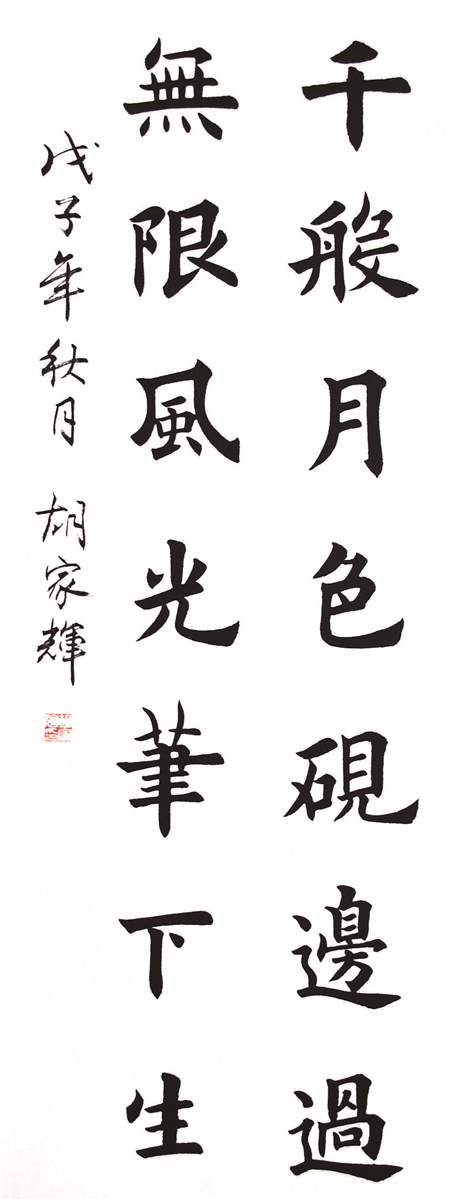 千般月色硯邊過
無限風光筆下生
戊子年秋月 胡家輝